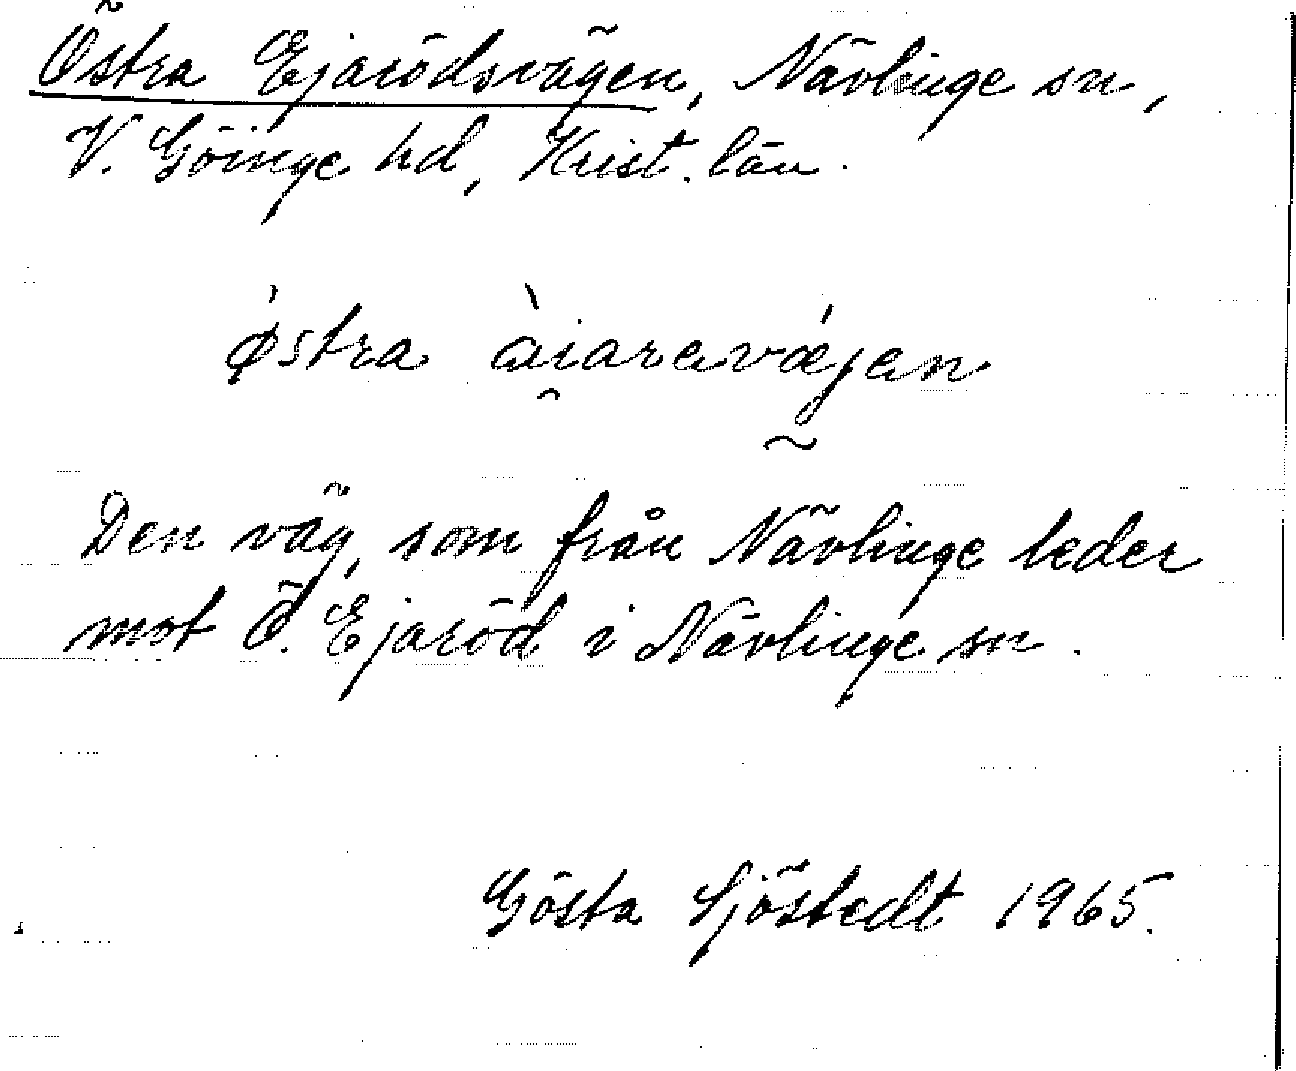 Östra Ejarödsvägen, Nävlinge sn,
V. Göinge hd, Krist. län.
ǿstra àiaravǽjen
Den väg, som från Nävlinge leder
mot Ö. Ejaröd i Nävlinge sn.
Gösta Sjöstedt 1965.